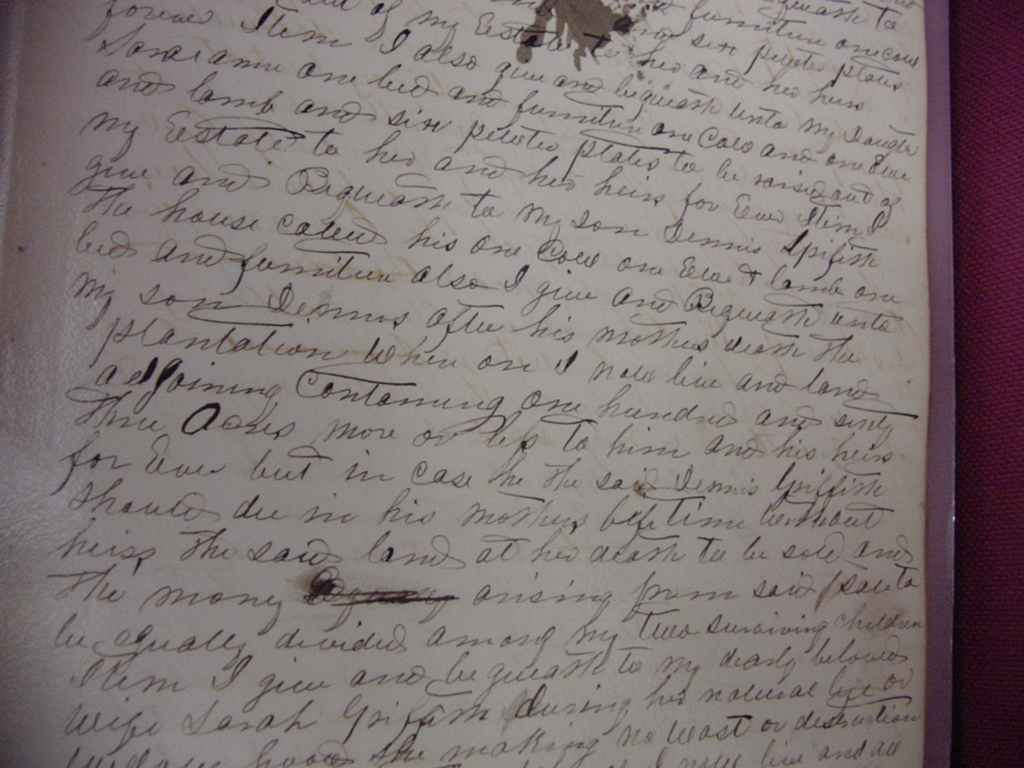 bequeath to
furniture one cow
out of my Estate to her and her heirs six pewter plates
forever Item I also give and bequeath unto my Daughter
one bed and furniture one Cow and one Ewe
and lamb and six pewter plates to be raised out of
my Estate to her and her heirs for Ever Item I
give and Bequeath to my son Dennis Griffith
the house his one Cow one Ewe & lamb one
bed and furniture also I give and Bequeath unto
my son Dennis after his mothers death the
plantation Where on I now live and land
adjoining Containing one hundred and sixty
three Acres more or less to him and his heirs
for Ever but in case he the said Dennis Griffith
should die in his mothers lifetime without
heirs the said land at her death to be sold and
the money arising from said sale to
be equally divided among my two surviving children
Item I give and bequeath to my dearly beloved
wife Sarah Griffith during her natural life or
she making no wast or destruction
I now live and all